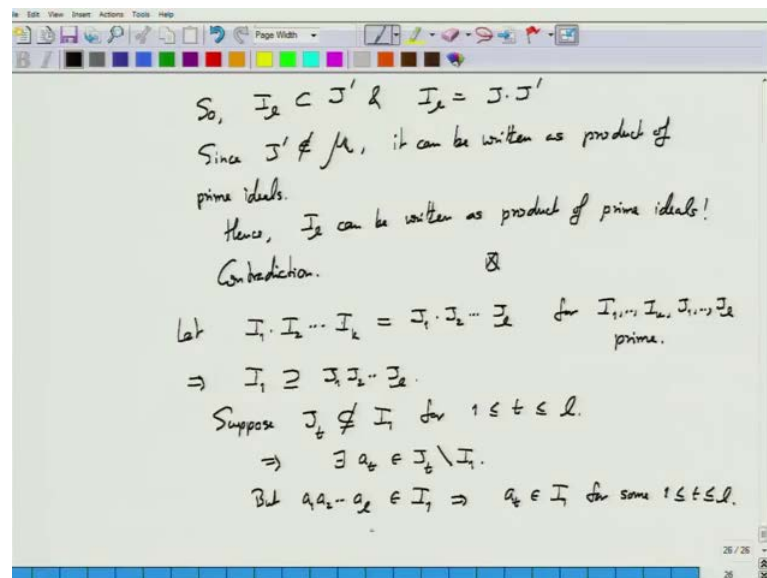 le Edit View Insert Actions Tools Help
Page Width
So, I_ℓ ⊂ J' & I_ℓ = J·J'
Since J' ∉ μ, it can be written as product of
prime ideals.
Hence, I_ℓ can be written as product of prime ideals!
Contradiction.
Let I_1·I_2···I_k = J_1·J_2···J_ℓ for I_1,..., I_k, J_1,..., J_ℓ
prime.
⇒ I_1 ⊇ J_1 J_2··J_ℓ.
Suppose J_t ⊄ I_1 for 1 ≤ t ≤ ℓ.
⇒ ∃ a_t ∈ J_t \ I_1.
But a_1 a_2··a_ℓ ∈ I_1 ⇒ a_t ∈ I_1 for some 1 ≤ t ≤ ℓ.
26 / 26
26